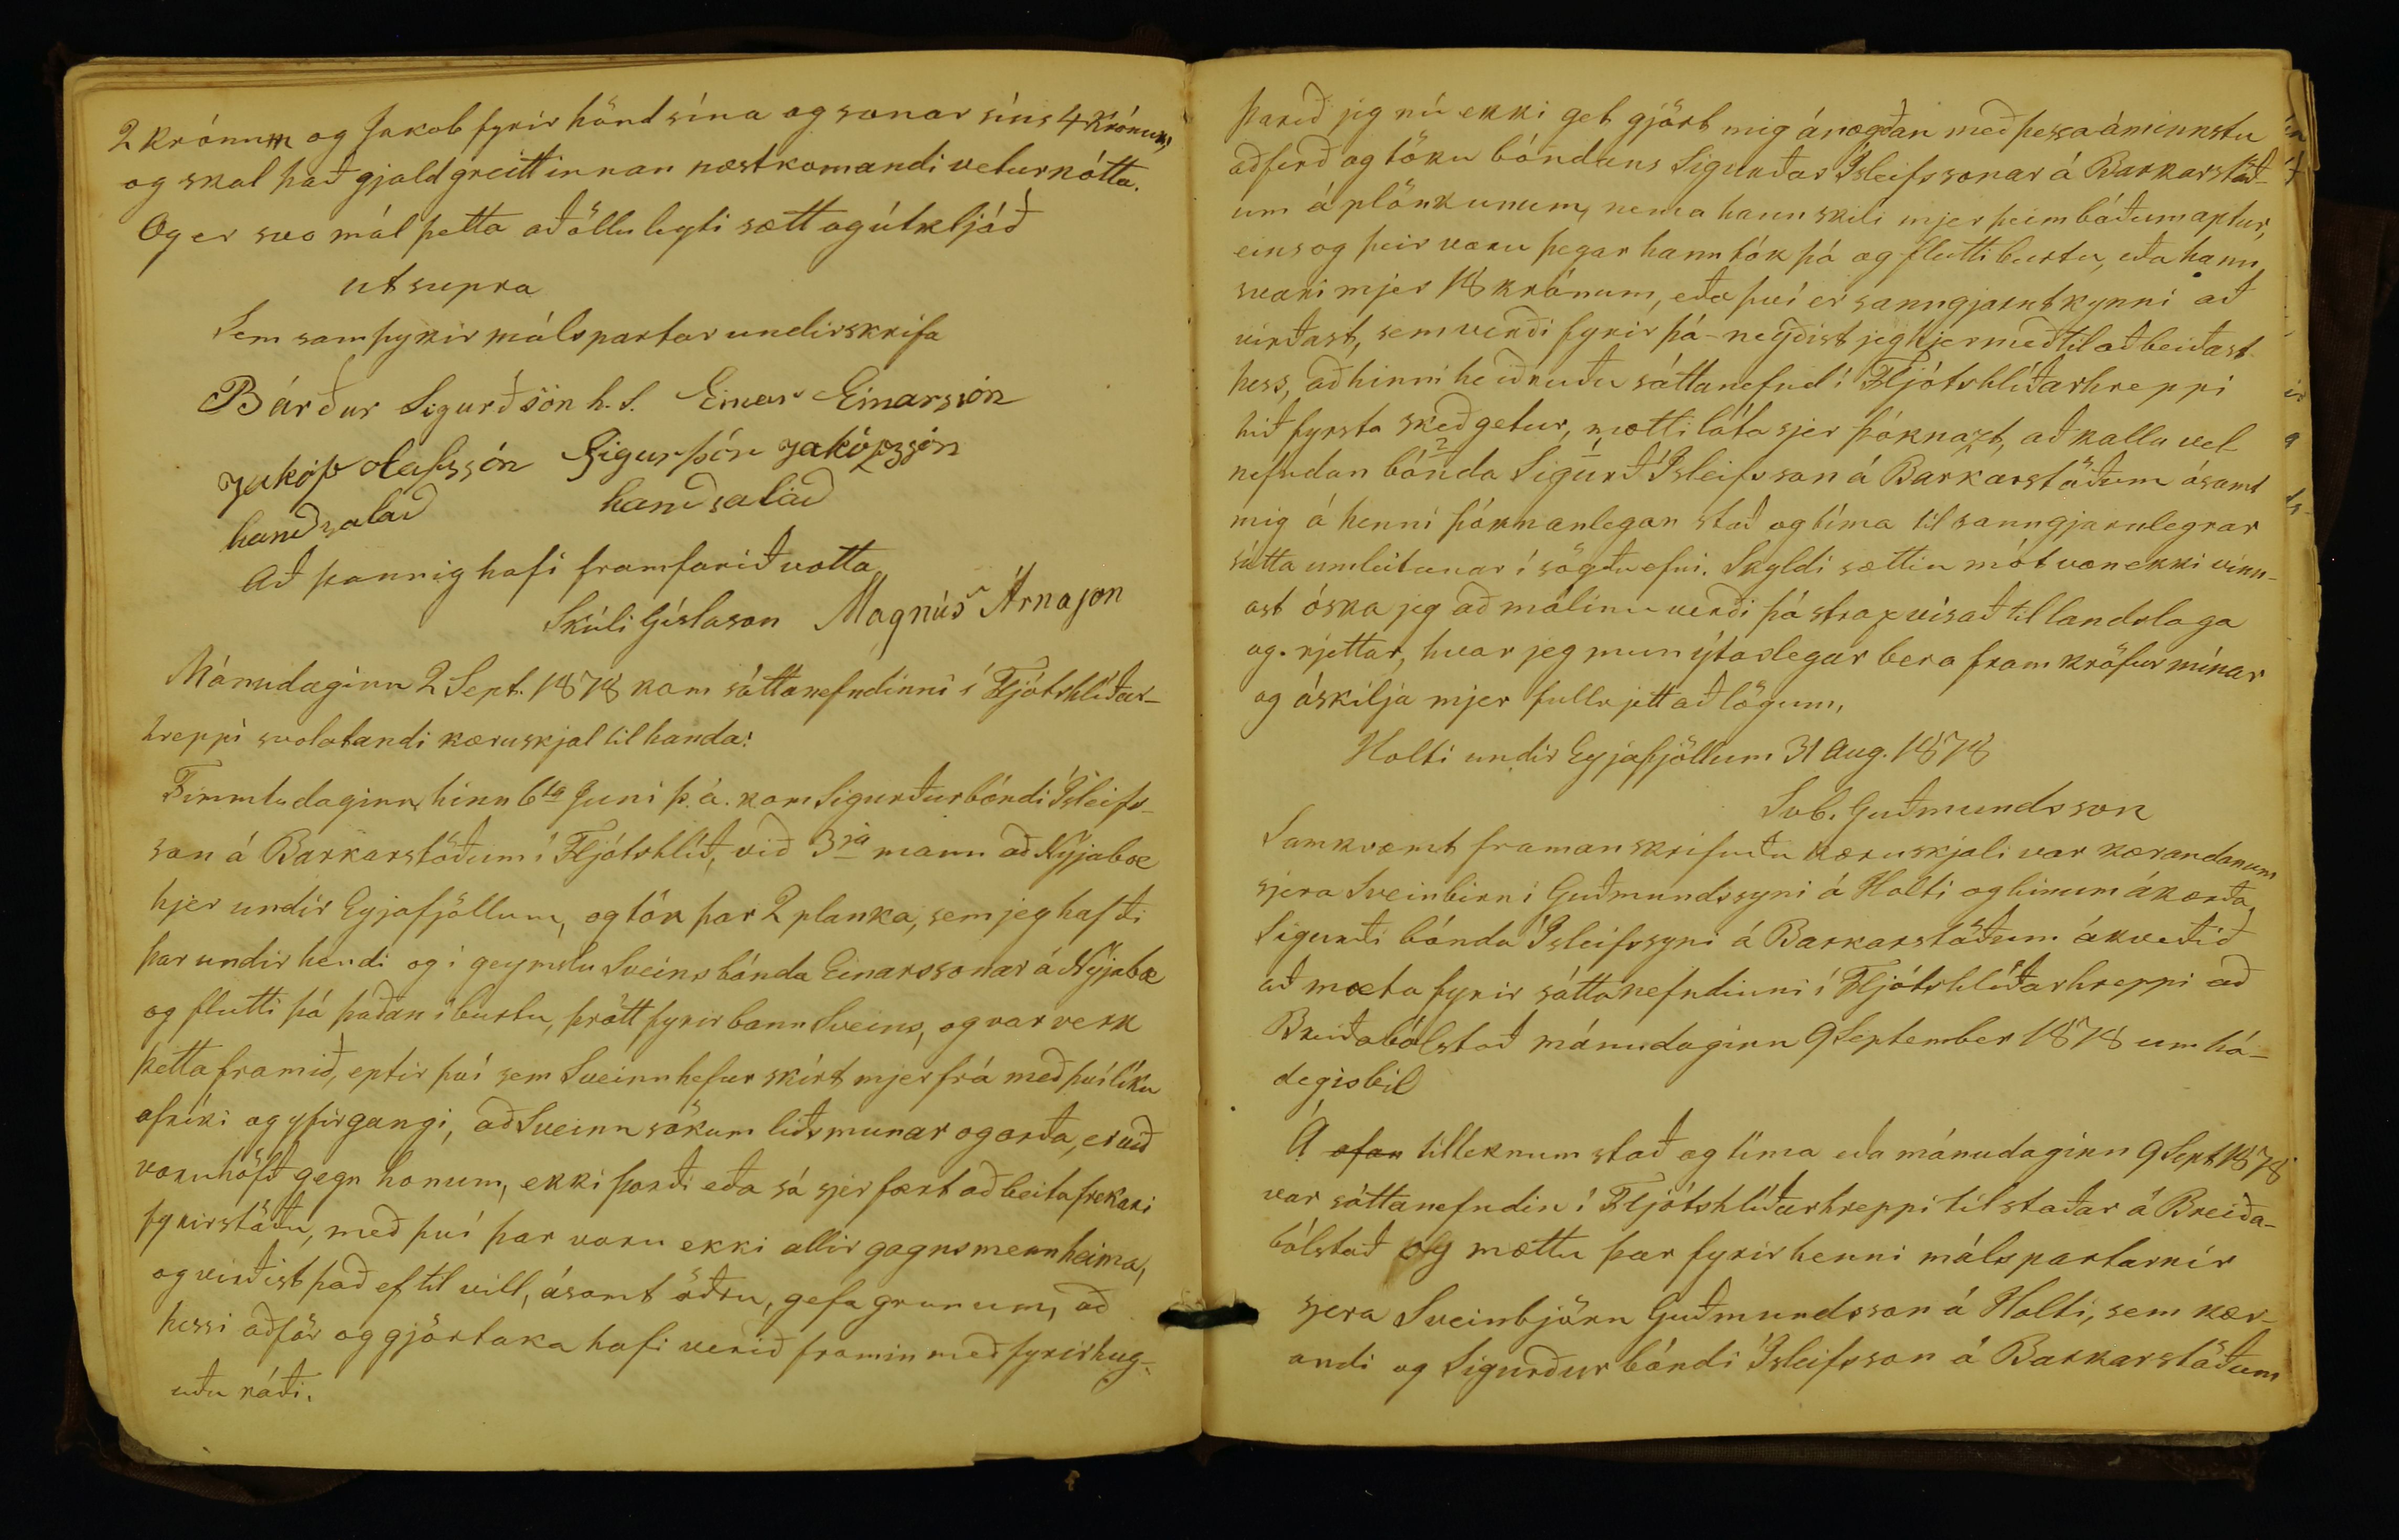 2 krónum og Jakob fyrir hönd sína og sonar síns 4 krónum,
og skal það gjald greitt innan næstkomandi veturnótta.
Og er svo mál þetta að öllu leyti sætt og útkljáð
ut supra
Sem samþykir málspartar undirskrifa
Bárður Sigurðsön h. S. Einar Einarssón
Jakóp Olafssón Sigurþór Jakópssón
handsalað handsalað
Að þannig hafi framfarið votta
Skúli Gíslason Magnús Árnason
Mánudaginn 2 Sept. 1878 kom sáttanefndinni í Fljótshlíðar-
hreppi svolatandi kæruskjal til handa:
Fimmtudaginn hinn 6ta Juni þ. á. kom Sigurður bóndi Ísleifs-
son á Barkarstöðum í Fljótshlíð, við 3ja mann að Nýjabæ
hjer undir Eyjafjöllum, og tók þar 2 planka, sem jeg hafði
þar undir hendi og í geymslu Sveins bónda Einarssonar á Nýjabæ
og flutti þá þaðan í burtu, þrátt fyrir bann Sveins, og var verk
þetta framið, eptir því sem Sveinn hefur skírt mjer frá með þvílíku
ofríki og yfirgangi, að Sveinn sökum liðsmunar og orða, er við
voru höfð gegn honum, ekki þorði eða sá sjer fært að beita frekari
fyrirstöðu, með því þar voru ekki allir gagnsmenn heima,
og virðist það ef til vill, ásamt öðru, gefa grunum, að
þessi aðför og gjörtaka hafi verið framin með fyrirhug-
uðu ráði.
Þareð jeg nú ekki get gjört mig ánægðan með þessa áminnstu
aðferð og töku bóndans Sigurðar Ísleifssonar á Barkarstöð-
um á plönkunum, nema hann skili mjer þeim báðum aptur,
eins og þeir voru þegar hann tók þá og flutti burtu, eða hann
svari mjer 18 krónum, eða því er sanngjarnt kynni að
virðast, sem verði fyrir þá - neyðist jeg hjer með til að beiðast
þess, að hinni heiðruðu sáttanefnd í Fljótshlíðarhreppi
hið fyrsta skeð getur, mætti láta sjer þóknazt, að kalla vel-
nefndan bónda Sigurð Ísleifsson á Barkarstöðum ásamt
mig á henni þóknanlegan stað og tíma til sanngjarnlegrar
sátta umleitunar í sögðu efni. Skyldi sættin mót von ekki vinn-
ast óska jeg að málinu verði þá strax vísað til landslaga
og rjettar, hvar jeg mun ýtarlegar bera fram kröfur mínar
og áskilja mjer fullrjett að lögum,
Holti undir Eyjafjöllum 31 Aug. 1878
Svb. Guðmundsson
Samkvæmt framanskrifuðu kæruskjali var kærandanum
sjera Sveinbirni Guðmundssyni á Holti og hinum ákærða,
Sigurði bónda Ísleifssyni á Barkarstöðum ákveðið
að mæta fyrir sáttanefndinni í Fljótshlíðarhreppi að
Breiðabólstað mánudaginn 9 September 1878 um há-
degisbil
Á ofan tilteknum stað og tíma eða mánudaginn 9 Sept 1878
var sáttanefndin í Fljótshlíðarhreppi til staðar á Breiða-
bólstað og mættu þar fyrir henni málspartarnir
sjera Sveinbjörn Guðmundsson á Holti, sem kær-
andi og Sigurður bóndi Ísleifsson á Barkarstöðum